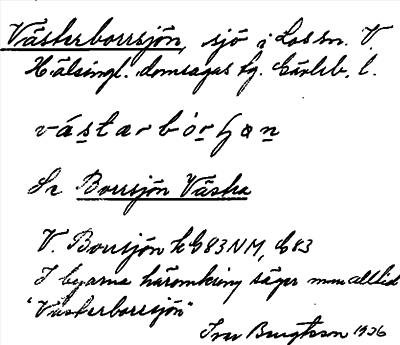 Västerborrsjön, sjö i Los sn. V.
Hälsingl. domsagas tg. Gävleb. l.
västarbórʃɷn
Se Borrsjön Västra
V. Borrsjön k G83NM, G83
I byarna häromkring säger man alltid
"Västerborrsjön"
Ivar Bengtsson 1926